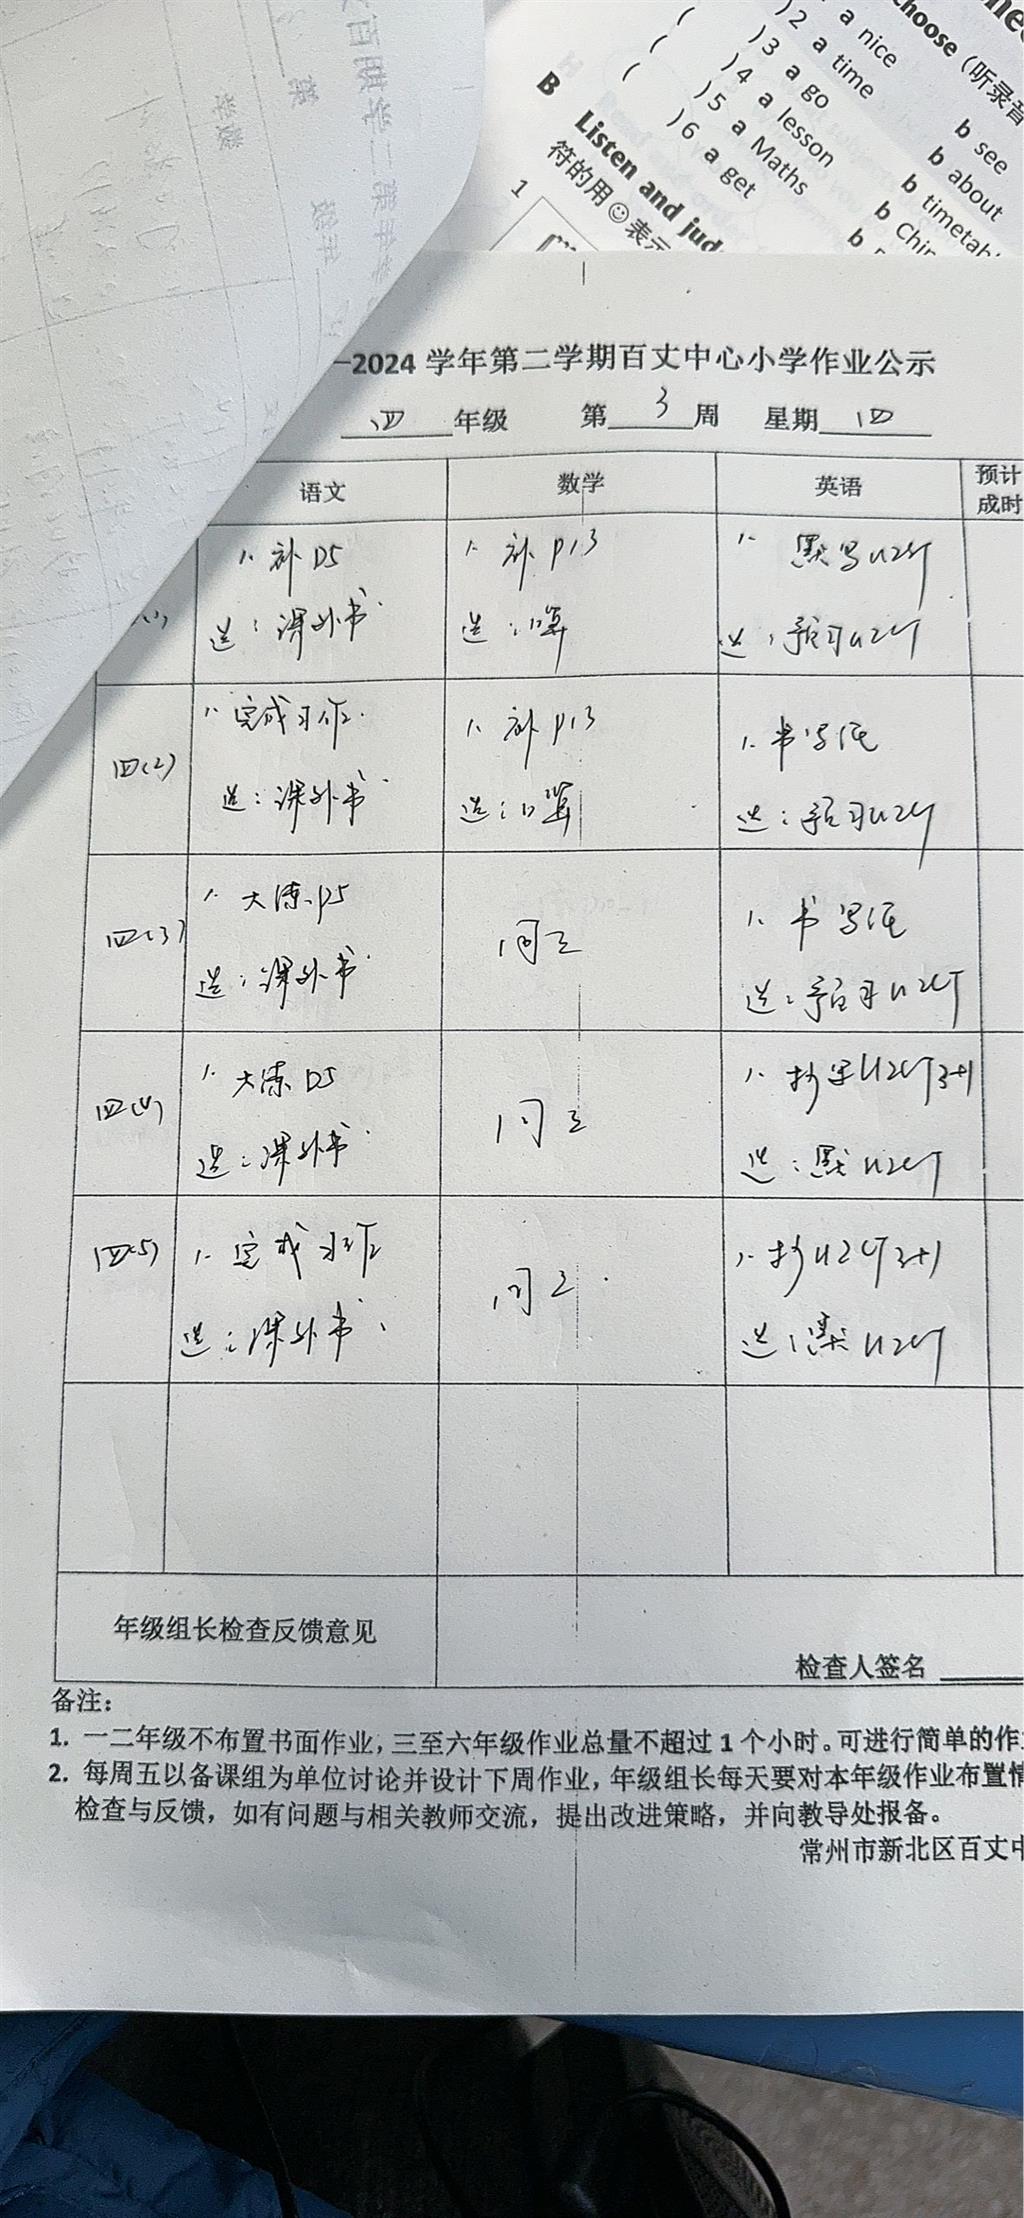 a nice
)2 a time
)3 a go
)4 a lesson
)5 a Maths
)6 a get
b see
b about
b
choose (听录音
B Listen and jud
符的用☺表示
1
—2024 学年第二学期百丈中心小学作业公示
四 年级 第 3 周 星期 四
语文 数学 英语 预计
成时
1. 补 P5 1. 补 P13 1. 默写 U2
选：课外书 选：口算 选：预习 U2
四(2) 1. 完成习作. 1. 补 P13 1. 书写纸
选：课外书 选：口算 选：预习 U2
四(3) 1. 大练 P5 同上 1. 书写纸
选：课外书 选：预习 U2
四(4) 1. 大练 P5 同上 1. 抄 U2 3+1
选：课外书 选：默 U2
四(5) 1. 完成习作 同上 1. 抄 U2 3+1
选：课外书 选：默 U2
年级组长检查反馈意见
检查人签名
备注：
1. 一二年级不布置书面作业，三至六年级作业总量不超过 1 个小时。可进行简单的作
2. 每周五以备课组为单位讨论并设计下周作业，年级组长每天要对本年级作业布置情
检查与反馈，如有问题与相关教师交流，提出改进策略，并向教导处报备。
常州市新北区百丈中